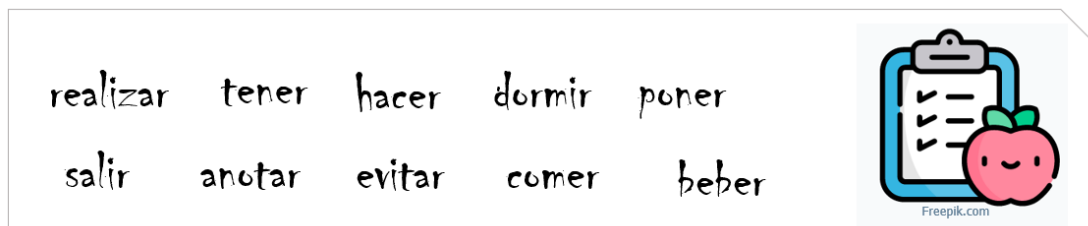 realizar tener hacer dormir poner
salir anotar evitar comer beber
Freepik.com